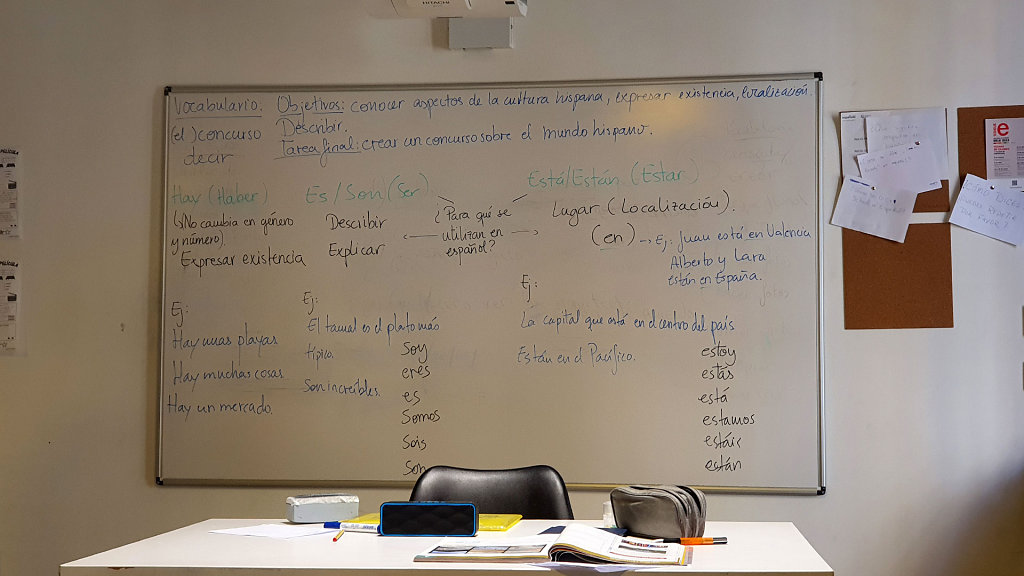 HITACHI
Vocabulario: Objetivos: conocer aspectos de la cultura hispana, expresar existencia, localización.
(el) concurso Describir.
decir Tarea final: crear un concurso sobre el mundo hispano.
Hay (Haber) Es / Son (Ser) Está/Están (Estar)
↳No cambia en género y número).
Expresar existencia
Describir
Explicar
¿Para qué se
utilizan en
español?
Lugar (Localización).
(en) → Ej: Juan está en Valencia
Alberto y Lara
están en España.
Ej:
Hay unas playas
Hay muchas cosas
Hay un mercado
Ej:
El tamal es el plato más
típico.
Son increíbles.
Soy
eres
es
Somos
Sois
Son
Ej:
La capital que está en el centro del país
Están en el Pacífico.
estoy
estás
está
estamos
estáis
están
e